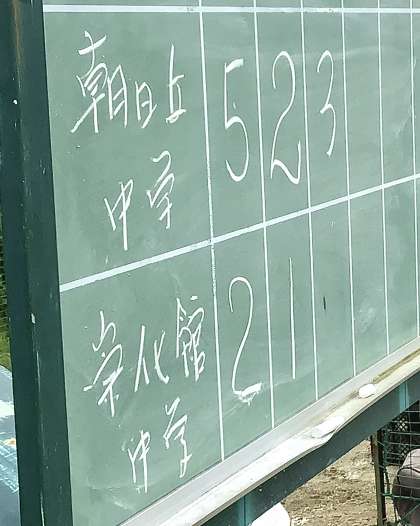 朝日丘 5 2 3
中学
崇化館 2 1
中学